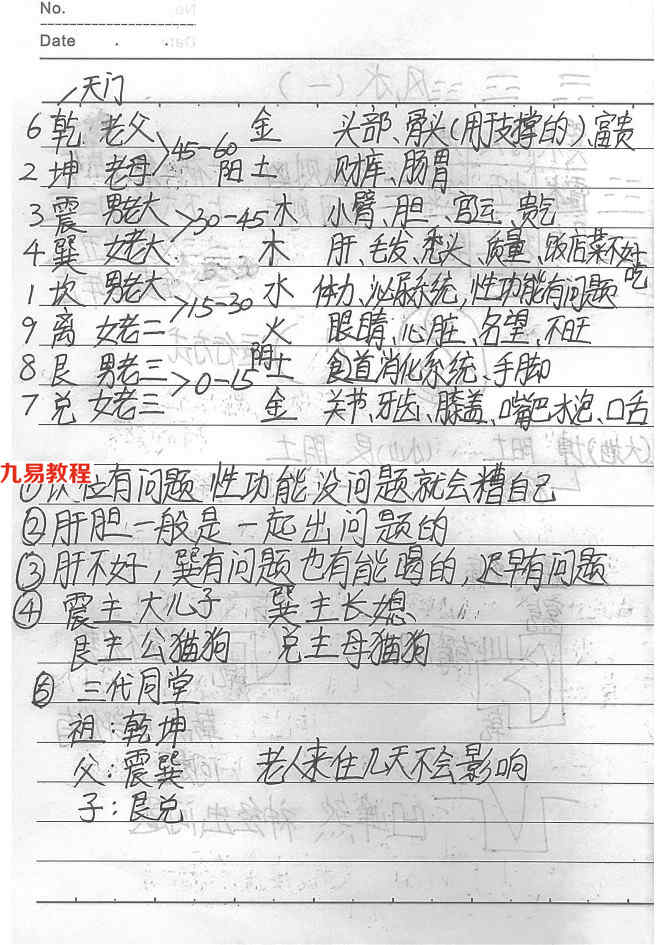 No.
Date . .
天门
6 乾 老父 >45-60 金 头部、骨头(用于支撑的)、富贵
2 坤 老母 阴土 财库、肠胃
3 震 男老大 >30-45 木 小臂、胆、官云、贵气
4 巽 女老大 木 肝、毛发、秃头、质量、饭店菜不好吃
1 坎 男老大 >15-30 水 体力、泌尿系统,性功能有问题
9 离 女老二 火 眼睛、心脏、名望、不旺
8 艮 男老三 >0-15 阴土 食首消化系统、手脚
7 兑 女老三 金 关节、牙齿、膝盖、嘴巴水泡、口舌
九易教程
①坎位有问题 性功能没问题就会糟自己
②肝胆一般是一起出问题的
③肝不好,巽有问题也有能喝的,迟早有问题
④ 震主大儿子 巽主长媳
艮主公猫狗 兑主母猫狗
⑤ 三代同堂
祖:乾坤
父:震巽 老人来住几天不会影响
子:艮兑